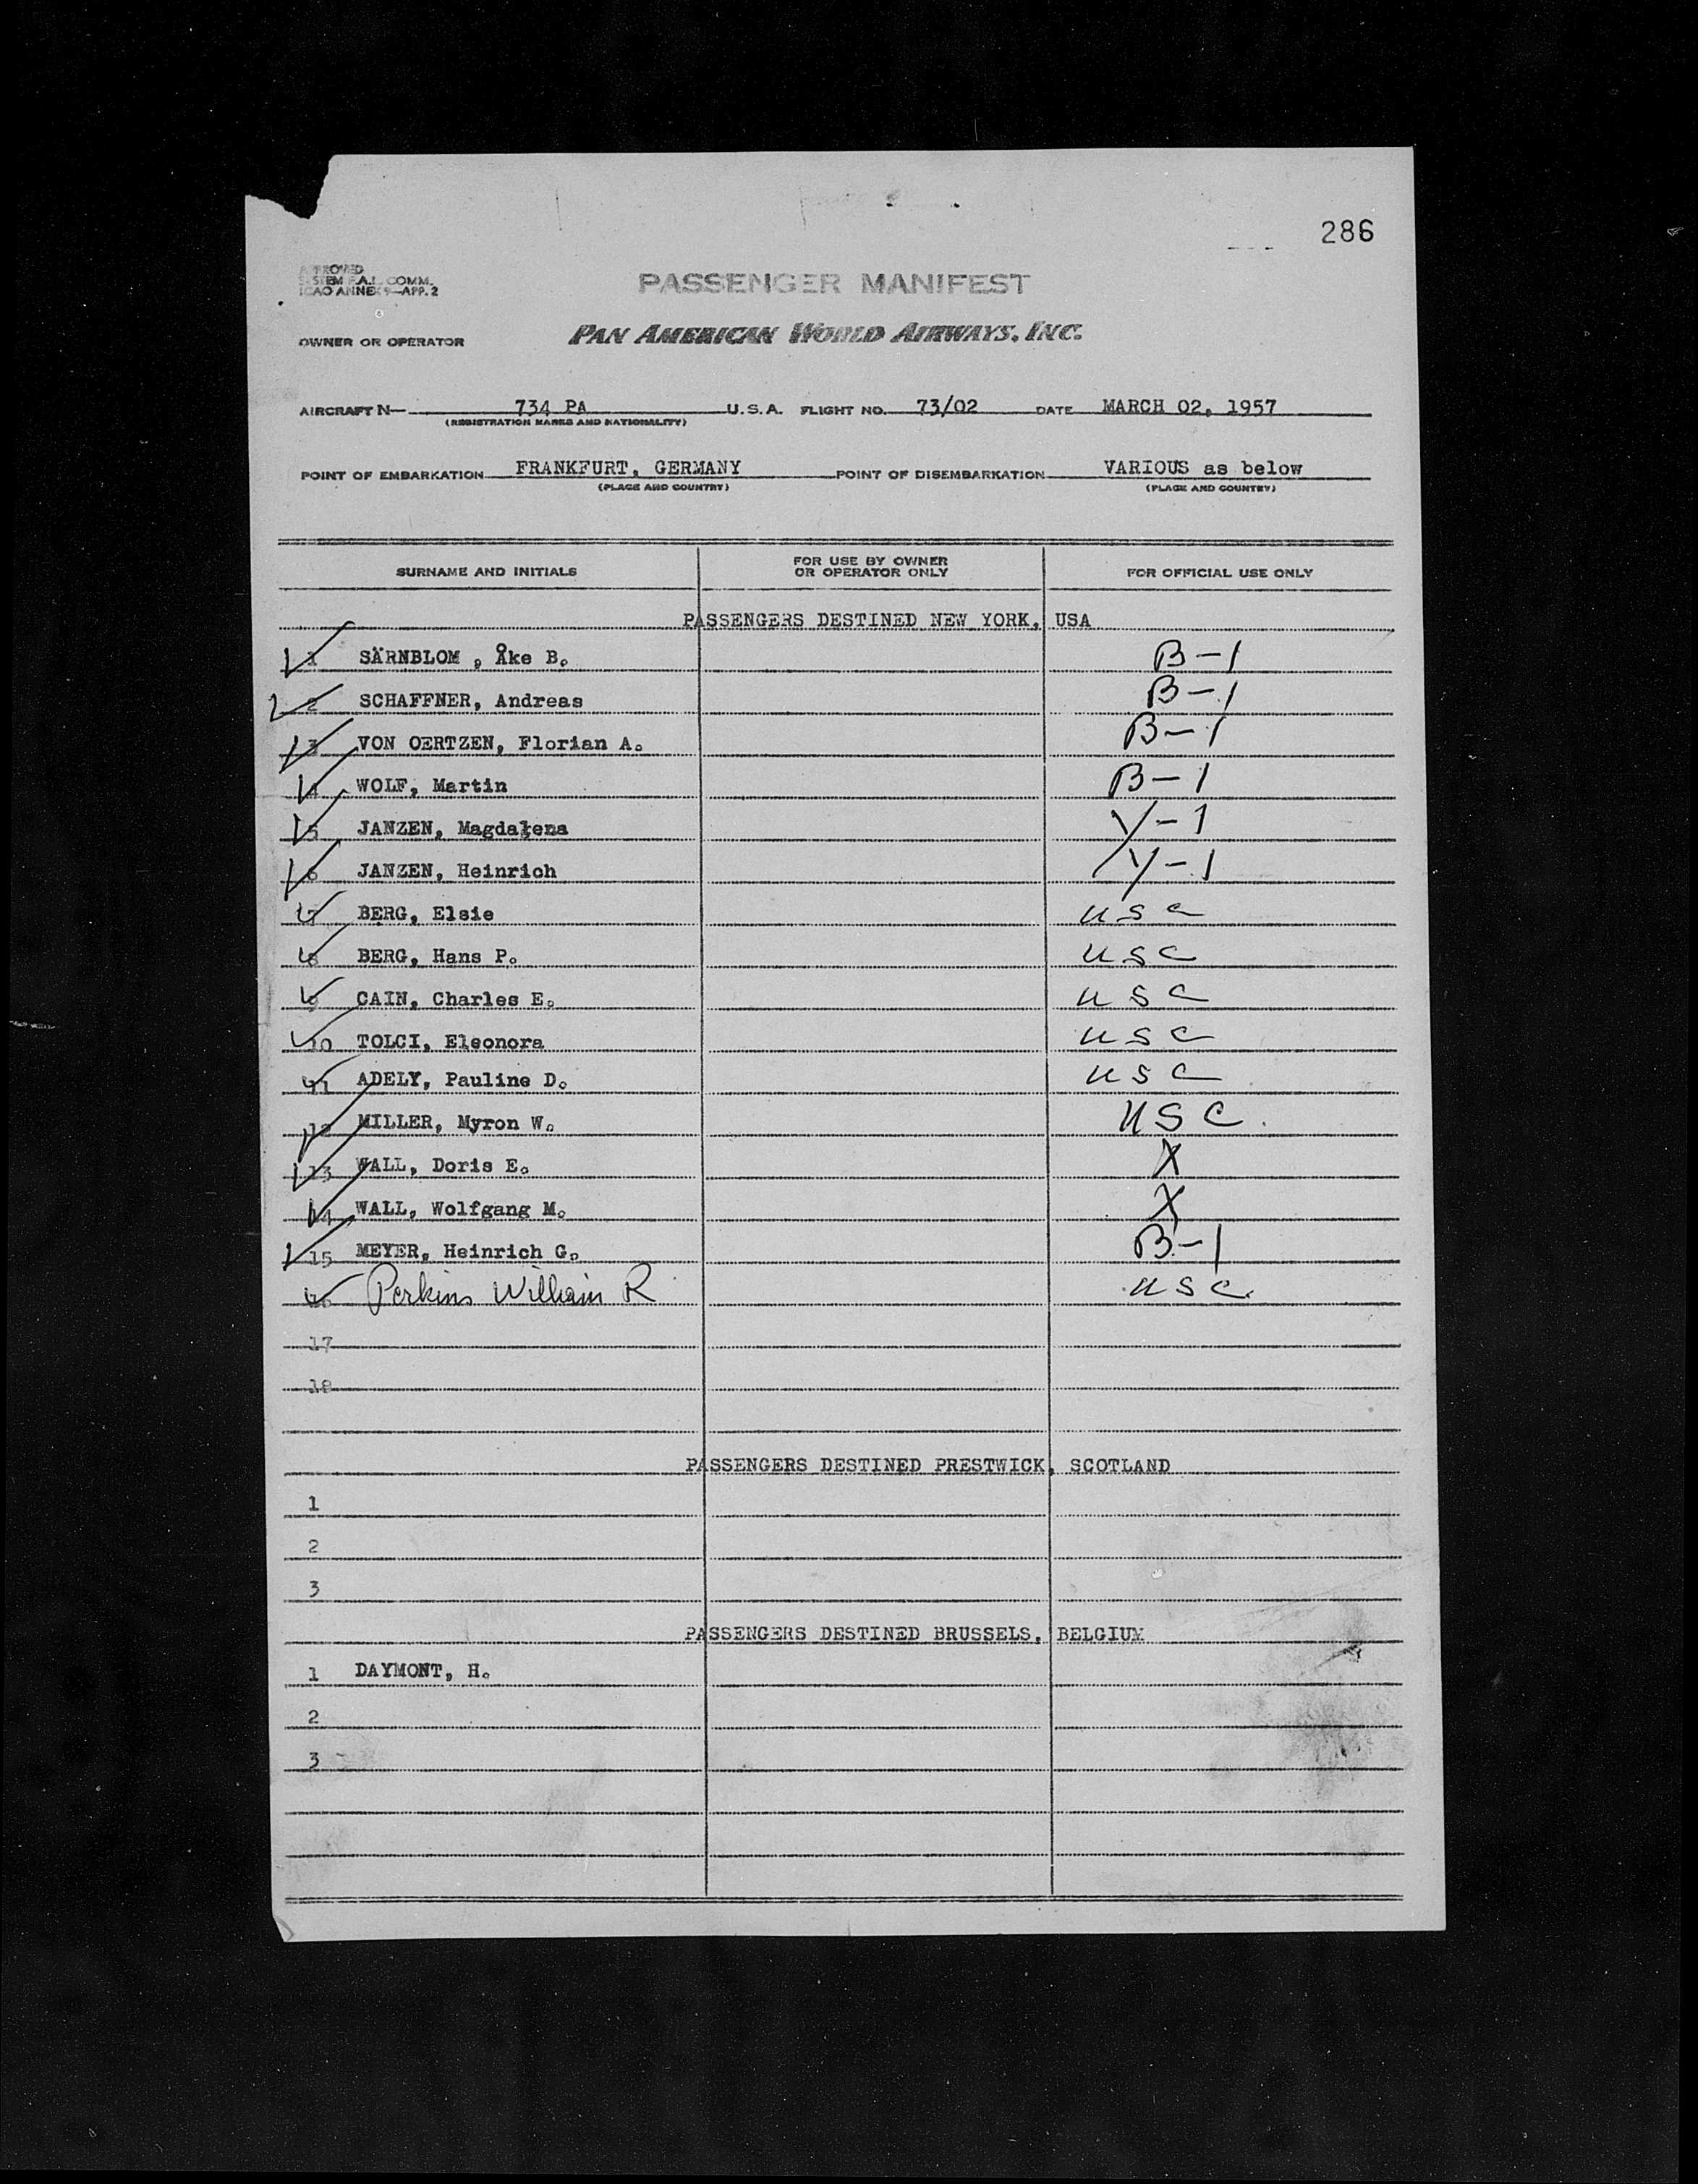 286
APPROVED
SYSTEM F.A.L. COMM.
ICAO ANNEX 9—APP. 2
PASSENGER MANIFEST
OWNER OR OPERATOR PAN AMERICAN WORLD AIRWAYS, INC.
AIRCRAFT N— 734 PA U.S.A. FLIGHT NO. 73/02 DATE MARCH 02, 1957
(REGISTRATION MARKS AND NATIONALITY)
POINT OF EMBARKATION FRANKFURT, GERMANY POINT OF DISEMBARKATION VARIOUS as below
(PLACE AND COUNTRY) (PLACE AND COUNTRY)
SURNAME AND INITIALS FOR USE BY OWNER OR OPERATOR ONLY FOR OFFICIAL USE ONLY
PASSENGERS DESTINED NEW YORK, USA
1 SÄRNBLOM , Åke B. B-1
2 SCHAFFNER, Andreas B-1
3 VON OERTZEN, Florian A. B-1
4 WOLF, Martin B-1
5 JANZEN, Magdalena Y-1
6 JANZEN, Heinrich Y-1
7 BERG, Elsie USC
8 BERG, Hans P. USC
9 CAIN, Charles E. USC
10 TOLCI, Eleonora USC
11 ADELY, Pauline D. USC
12 MILLER, Myron W. USC.
13 WALL, Doris E. X
14 WALL, Wolfgang M. X
15 MEYER, Heinrich G. B-1
16 Perkins William R USC.
17
18
PASSENGERS DESTINED PRESTWICK, SCOTLAND
1
2
3
PASSENGERS DESTINED BRUSSELS, BELGIUM
1 DAYMONT, H.
2
3